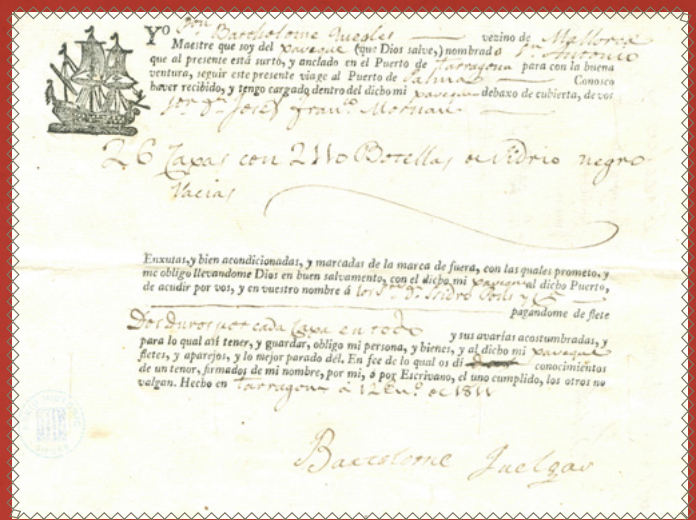 Yo Dn. Bartholome Juelgas vezino de Mallorca
Maestre que soy del xaveque (que Dios salve,) nombrado Sn. Antonio
que al presente está surto, y anclado en el Puerto de Tarragona para con la buena
ventura, seguir este presente viage al Puerto de Palma Conosco
haver recibido, y tengo cargado dentro del dicho mi xaveque debaxo de cubierta, de vos
Dn. Josef Franco.
26 Caxas con 2110 Botellas de Vidrio negro
Vacias
Enxutas, y bien acondicionadas, y marcadas de la marca de fuera, con las quales prometo, y
me obligo llevandome Dios en buen salvamento, con el dicho mi xaveque al dicho Puerto,
de acudir por vos, y en vuestro nombre á los Srs. Dn. Isidro Pons y Ca
pagandome de flete
Dos duros por cada Caxa en todo y sus avarías acostumbradas, y
para lo qual asi tener, y guardar, obligo mi persona, y bienes, y al dicho mi xaveque
fletes, y aparejos, y lo mejor parado dél. En fee de lo qual os dí conocimientos
de un tenor, firmados de mi nombre, por mi, ó por Escrivano, el uno cumplido, los otros no
valgan. Hecho en Tarragona á 12 Eno. de 1811
Bartolome Juelgas